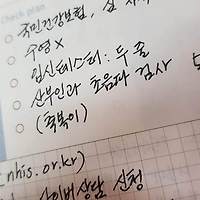 Check plan
국민건강보험, 실
수영 X
임신테스터: 두 줄
산부인과 초음파 검사
(축복이)
nhis.or.kr)
상담 신청